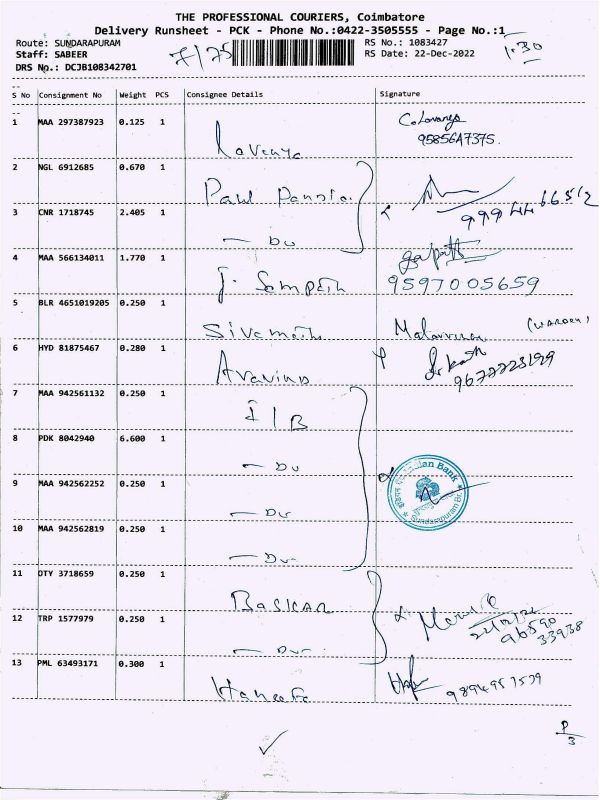 THE PROFESSIONAL COURIERS, Coimbatore
Delivery Runsheet - PCK - Phone No.:0422-3505555 - Page No.:1
Route: SUNDARAPURAM 7/75 RS No.: 1083427 1.30
Staff: SABEER RS Date: 22-Dec-2022
DRS No.: DCJB108342701
S No Consignment No Weight PCS Consignee Details Signature
1 MAA 297387923 0.125 1 Lavanya C. Lavanya
9585647375.
2 NGL 6912685 0.670 1 Paul
3 CNR 1718745 2.405 1 — Do
4 MAA 566134011 1.770 1 J. Sampath
9597005659
5 BLR 4651019205 0.250 1 (WARDEN)
6 HYD 81875467 0.280 1 Aravind
7 MAA 942561132 0.250 1 I/B
8 PDK 8042940 6.600 1 — Do
9 MAA 942562252 0.250 1 — Do
Indian Bank
Sundarapuram Br.
10 MAA 942562819 0.250 1 — Do
11 DTY 3718659 0.250 1 BASKAR
12 TRP 1577979 0.250 1 — Do
96590
33938
13 PML 63493171 0.300 1 Haneefa
P/3